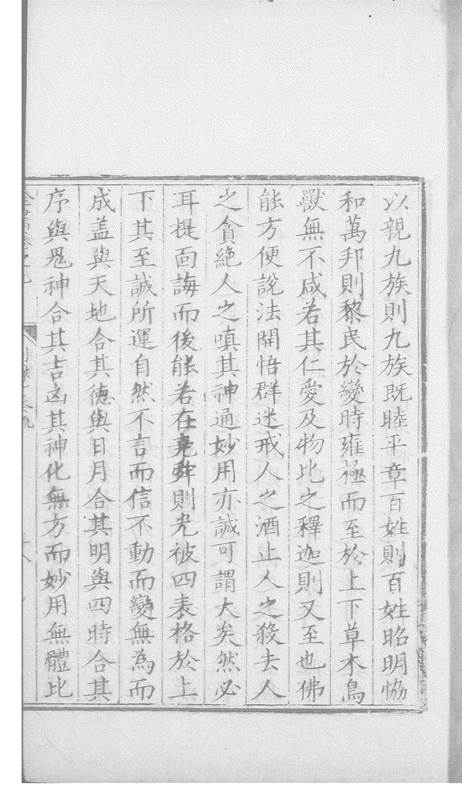 以親九族則九族既睦平章百姓則百姓昭明恊
和萬邦則黎民於變時雍極而至於上下草木鳥
獸無不咸若其仁愛及物比之釋迦則又至也佛
能方便說法開悟群迷戒人之酒止人之殺去人
之貪絶人之嗔其神通妙用亦誠可謂大矣然必
耳提面誨而後能若在堯舜則光被四表格於上
下其至誠所運自然不言而信不動而變無為而
成盖與天地合其德與日月合其明與四時合其
序與鬼神合其吉凶其神化無方而妙用無體比